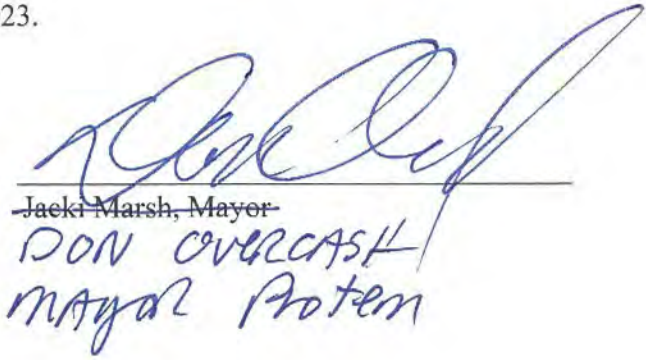 23.
Jacki Marsh, Mayor
DON OVERCASH
MAYOR Protem